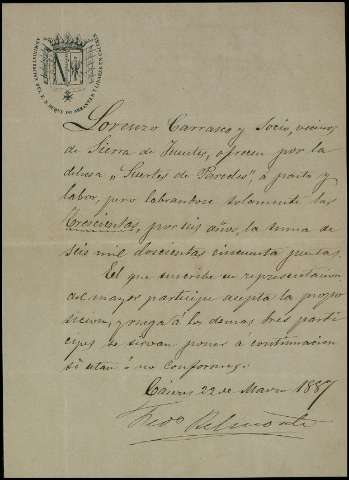 ADMINISTRACION DEL E. S. DUQUE DE ABRANTES Y LINARES EN CACERES
Lorenzo Carrasco y Socio, vecinos
de Sierra de Fuentes, ofrecen por la
dehesa "Suertes de Paredes" á pasto y
labor, pero labrandose solamente las
Trescientas, por seis años, la suma de
seis mil doscientas cincuenta pesetas.
El que suscribe en representacion
del mayor participe acepta la propo
sicion, y ruega á los demas tres parti
cipes se sirvan poner á continuacion
si estan ó no conformes.
Cáceres 22 de Marzo 1887
Fedo Belmonte